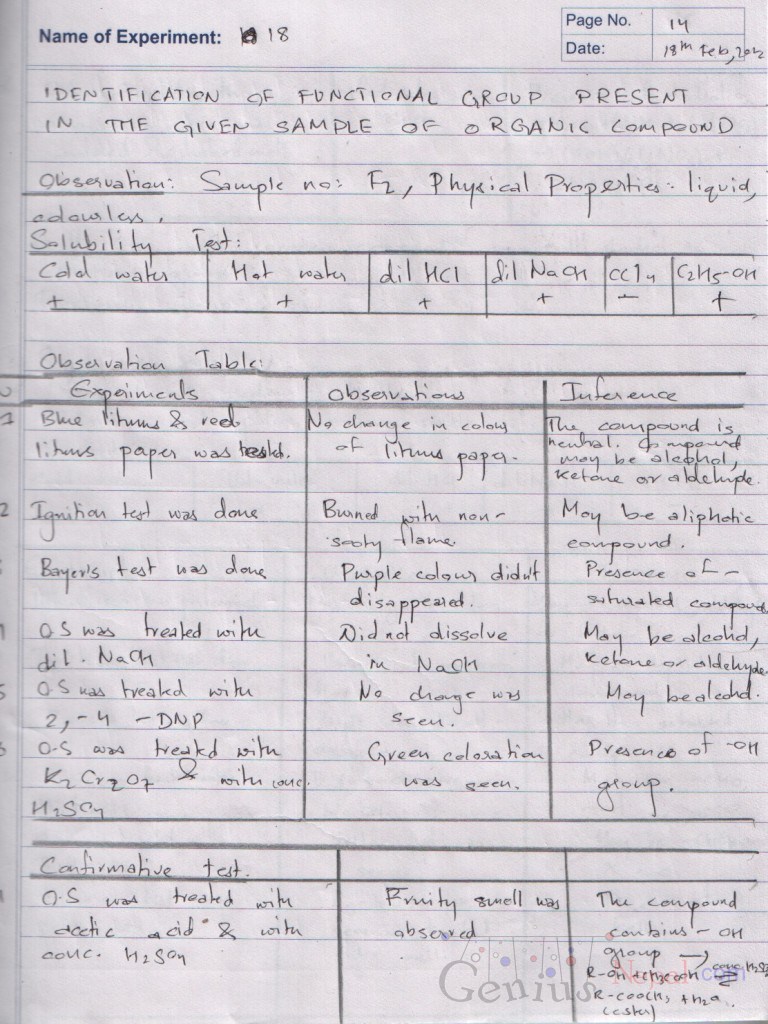 Name of Experiment: 18
Page No. 14
Date: 18th Feb, 2012
IDENTIFICATION OF FUNCTIONAL GROUP PRESENT
IN THE GIVEN SAMPLE OF ORGANIC COMPOUND
Observation: Sample no: F2, Physical Properties:- liquid,
colourless,
Solubility Test:
Cold water Hot water dil HCl dil NaOH CCl4 C2H5-OH
+ + + + - +
Observation Table:
Experiments Observations Inference
1 Blue litmus & red
litmus paper was tested.
No change in colour
of litmus paper.
The compound is
neutral. Compound
may be alcohol,
ketone or aldehyde.
2 Ignition test was done
Burned with non-
sooty flame.
May be aliphatic
compound.
Bayer's test was done
Purple colour didn't
disappeared.
Presence of -
saturated compound
O.S was treated with
dil. NaOH
Did not dissolve
in NaOH
May be alcohol,
ketone or aldehyde.
5 O.S was treated with
2,-4 -DNP
No change was
seen.
May be alcohol.
O.S was treated with
K2Cr2O7 & with conc.
H2SO4
Green coloration
was seen.
Presence of -OH
group.
Confirmative test.
O.S was treated with
acetic acid & with
conc. H2SO4
Fruity smell was
observed
The compound
contains -OH
group →
R-OH + CH3COOH conc H2SO4
R-COOCH3 + H2O
(ester)
Genius Nepal.com